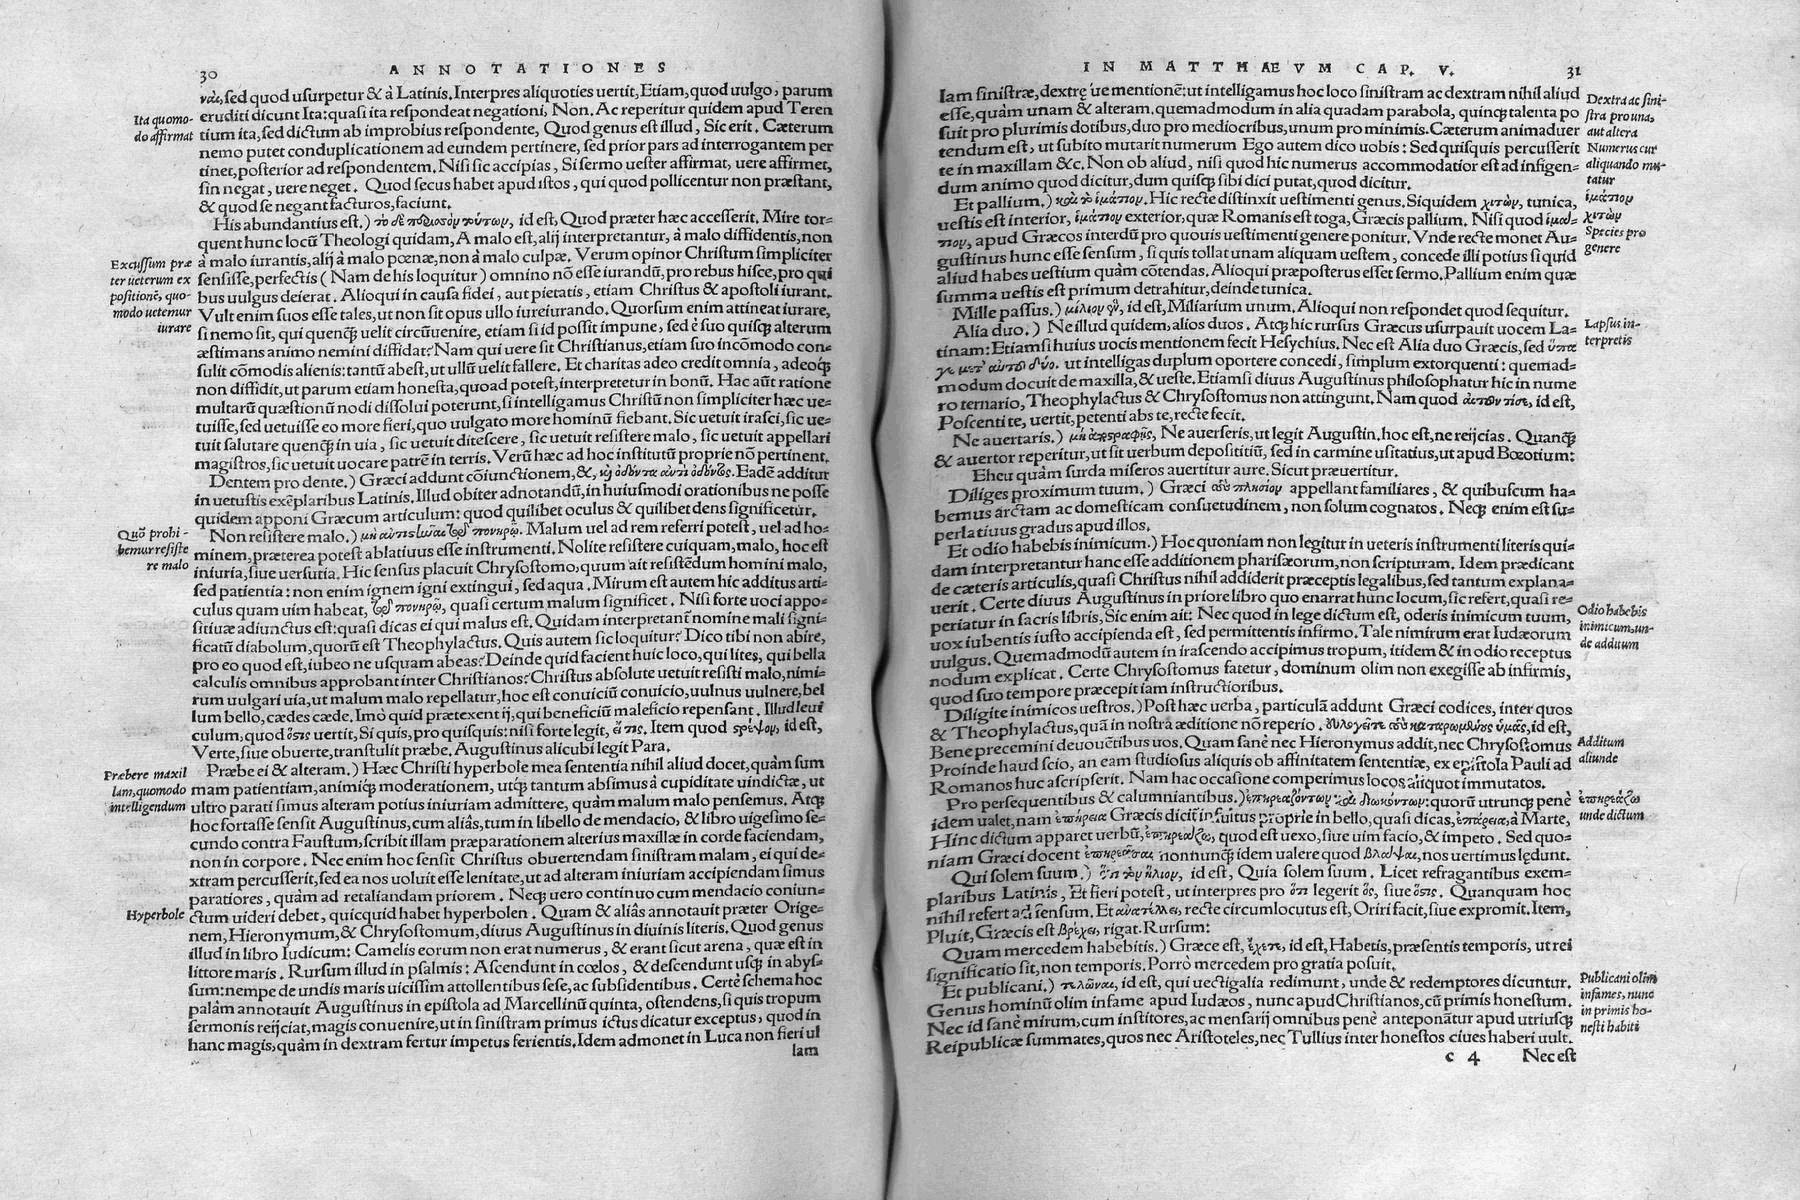 30
ANNOTATIONES
ναι, sed quod usurpetur & à Latinis. Interpres aliquoties uertit, Etiam, quod uulgo, parum
eruditi dicunt Ita: quasi ita respondeat negationi, Non. Ac reperitur quidem apud Teren
tium ita, sed dictum ab improbius respondente, Quod genus est illud, Sic erit. Cæterum
nemo putet conduplicationem ad eundem pertinere, sed prior pars ad interrogantem per
tinet, posterior ad respondentem. Nisi sic accipias, Si sermo uester affirmat, uere affirmet,
sin negat, uere neget. Quod secus habet apud istos, qui quod pollicentur non præstant,
& quod se negant facturos, faciunt.
His abundantius est.) τὸ δὲ περισσὸν τούτων, id est, Quod præter hæc accesserit. Mire tor-
quent hunc locū Theologi quidam, A malo est, alij interpretantur, à malo diffidentis, non
à malo iurantis, alij à malo pœnæ, non à malo culpæ. Verum opinor Christum simpliciter
sensisse, perfectis (Nam de his loquitur) omnino nō esse iurandū, pro rebus hisce, pro qui
bus uulgus deierat. Alioqui in causa fidei, aut pietatis, etiam Christus & apostoli iurant.
Vult enim suos esse tales, ut non sit opus ullo iureiurando. Quorsum enim attineat iurare,
si nemo sit, qui quenq̃ uelit circūuenire, etiam si id possit impune, sed è suo quisq; alterum
æstimans animo nemini diffidat? Nam qui uere sit Christianus, etiam suo incōmodo con-
sulit cōmodis alienis: tantū abest, ut ullū uelit fallere. Et charitas adeo credit omnia, adeoq́;
non diffidit, ut parum etiam honesta, quoad potest, interpretetur in bonū. Hac aūt ratione
multarū quæstionū nodi dissolui poterunt, si intelligamus Christū non simpliciter hæc ue-
tuisse, sed uetuisse eo more fieri, quo uulgato more hominū fiebant. Sic uetuit irasci, sic ue-
tuit salutare quenq̃ in uia, sic uetuit ditescere, sic uetuit resistere malo, sic uetuit appellari
magistros, sic uetuit uocare patrē in terris. Verū hæc ad hoc institutū proprie nō pertinent.
Dentem pro dente.) Græci addunt cōiunctionem, &, καὶ ὀδόντα ἀντὶ ὀδόντος. Eadē additur
in uetustis exēplaribus Latinis. Illud obiter adnotandū, in huiusmodi orationibus ne posse
quidem apponi Græcum articulum: quod quilibet oculus & quilibet dens significetur.
Non resistere malo.) μὴ ἀντιστῆναι τῷ πονηρῷ. Malum uel ad rem referri potest, uel ad ho-
minem, præterea potest ablatiuus esse instrumenti. Nolite resistere cuiquam, malo, hoc est
iniuria, siue uersutia. Hic sensus placuit Chrysostomo, quum ait resistēdum homini malo,
sed patientia: non enim ignem igni extingui, sed aqua. Mirum est autem hic additus arti-
culus quam uim habeat, τῷ πονηρῷ, quasi certum malum significet. Nisi forte uoci appo-
sitiuæ adiunctus est: quasi dicas ei qui malus est. Quidam interpretant̃ nomine mali signi-
ficatū diabolum, quorū est Theophylactus. Quis autem sic loquitur? Dico tibi non abire,
pro eo quod est, iubeo ne usquam abeas? Deinde quid facient huic loco, qui lites, qui bella
calculis omnibus approbant inter Christianos? Christus absolute uetuit resisti malo, nimi-
rum uulgari uia, ut malum malo repellatur, hoc est conuiciū conuicio, uulnus uulnere, bel
lum bello, cædes cæde. Imò quid prætexent ij, qui beneficiū maleficio repensant. Illud leui
culum, quod ὅστις uertit, Si quis, pro quisquis: nisi forte legit, εἴ τις. Item quod στρέψον, id est,
Verte, siue obuerte, transtulit præbe. Augustinus alicubi legit Para.
Præbe ei & alteram.) Hæc Christi hyperbole mea sententia nihil aliud docet, quàm sum
mam patientiam, animiq́; moderationem, utq́; tantum absimus à cupiditate uindictæ, ut
ultro parati simus alteram potius iniuriam admittere, quàm malum malo pensemus. Atq;
hoc fortasse sensit Augustinus, cum aliâs, tum in libello de mendacio, & libro uigesimo se-
cundo contra Faustum, scribit illam præparationem alterius maxillæ in corde faciendam,
non in corpore. Nec enim hoc sensit Christus obuertendam sinistram malam, ei qui de-
xtram percusserit, sed ea nos uoluit esse lenitate, ut ad alteram iniuriam accipiendam simus
paratiores, quàm ad retaliandam priorem. Neq; uero continuo cum mendacio coniun-
ctum uideri debet, quicquid habet hyperbolen. Quam & aliâs annotauit præter Orige-
nem, Hieronymum, & Chrysostomum, diuus Augustinus in diuinis literis. Quod genus
illud in libro Iudicum: Camelis eorum non erat numerus, & erant sicut arena, quæ est in
littore maris. Rursum illud in psalmis: Ascendunt in cœlos, & descendunt usq; in abys-
sum: nempe de undis maris uicissim attollentibus sese, ac subsidentibus. Certè schema hoc
palàm annotauit Augustinus in epistola ad Marcellinū quinta, ostendens, si quis tropum
sermonis reijciat, magis conuenire, ut in sinistram primus ictus dicatur exceptus, quod in
hanc magis, quàm in dextram fertur impetus ferientis. Idem admonet in Luca non fieri ul
lam
Ita quomo-
do affirmat
Excussum præ
ter ueterum ex
positionē, quo-
modo uetemur
iurare
Quō prohi-
bemur resiste
re malo
Præbere maxil
lam, quomodo
intelligendum
Hyperbole
IN MATTHÆVM CAP. V.
31
Iam sinistræ, dextrę ue mentionē: ut intelligamus hoc loco sinistram ac dextram nihil aliud
esse, quàm unam & alteram, quemadmodum in alia quadam parabola, quinq; talenta po
suit pro plurimis dotibus, duo pro mediocribus, unum pro minimis. Cæterum animaduer
tendum est, ut subito mutarit numerum Ego autem dico uobis: Sed quisquis percusserit
te in maxillam &c. Non ob aliud, nisi quod hic numerus accommodatior est ad infigen-
dum animo quod dicitur, dum quisq; sibi dici putat, quod dicitur.
Et pallium.) καὶ τὸ ἱμάτιον. Hic recte distinxit uestimenti genus. Siquidem χιτὼν, tunica,
uestis est interior, ἱμάτιον exterior, quæ Romanis est toga, Græcis pallium. Nisi quod ἱμά-
τιον, apud Græcos interdū pro quouis uestimenti genere ponitur. Vnde recte monet Au-
gustinus hunc esse sensum, si quis tollat unam aliquam uestem, concede illi potius si quid
aliud habes uestium quàm cōtendas. Alioqui præposterus esset sermo. Pallium enim quæ
summa uestis est primum detrahitur, deinde tunica.
Mille passus.) μίλιον ἓν, id est, Miliarium unum. Alioqui non respondet quod sequitur.
Alia duo.) Ne illud quidem, alios duos. Atq; hic rursus Græcus usurpauit uocem La-
tinam: Etiamsi huius uocis mentionem fecit Hesychius. Nec est Alia duo Græcis, sed ὕπα
γε μετ' αὐτοῦ δύο. ut intelligas duplum oportere concedi, simplum extorquenti: quemad-
modum docuit de maxilla, & ueste. Etiamsi diuus Augustinus philosophatur hic in nume
ro ternario, Theophylactus & Chrysostomus non attingunt. Nam quod αἰτοῦντί σε, id est,
Poscenti te, uertit, petenti abs te, recte fecit.
Ne auertaris.) μὴ ἀποστραφῇς, Ne auerseris, ut legit Augustin. hoc est, ne reijcias. Quanq̃
& auertor reperitur, ut sit uerbum deposititiū, sed in carmine usitatius, ut apud Bœotium:
Eheu quàm surda miseros auertitur aure. Sicut præuertitur.
Diliges proximum tuum.) Græci τοὺς πλησίον appellant familiares, & quibuscum ha-
bemus arctam ac domesticam consuetudinem, non solum cognatos. Neq; enim est su-
perlatiuus gradus apud illos.
Et odio habebis inimicum.) Hoc quoniam non legitur in ueteris instrumenti literis qui-
dam interpretantur hanc esse additionem pharisæorum, non scripturam. Idem prædicant
de cæteris articulis, quasi Christus nihil addiderit præceptis legalibus, sed tantum explana-
uerit. Certe diuus Augustinus in priore libro quo enarrat hunc locum, sic refert, quasi re-
periatur in sacris libris, Sic enim ait: Nec quod in lege dictum est, oderis inimicum tuum,
uox iubentis iusto accipienda est, sed permittentis infirmo. Tale nimirum erat Iudæorum
uulgus. Quemadmodū autem in irascendo accipimus tropum, itidem & in odio receptus
nodum explicat. Certe Chrysostomus fatetur, dominum olim non exegisse ab infirmis,
quod suo tempore præcepit iam instructioribus.
Diligite inimicos uestros.) Post hæc uerba, particulā addunt Græci codices, inter quos
& Theophylactus, quā in nostra æditione nō reperio. εὐλογεῖτε τοὺς καταρωμένους ὑμᾶς, id est,
Bene precemini deuouētibus uos. Quam sanè nec Hieronymus addit, nec Chrysostomus
Proinde haud scio, an eam studiosus aliquis ob affinitatem sententiæ, ex epistola Pauli ad
Romanos huc ascripserit. Nam hac occasione comperimus locos aliquot immutatos.
Pro persequentibus & calumniantibus.) ἐπηρεαζόντων καὶ διωκόντων: quorū utrunq; penè
idem ualet, nam ἐπήρεια Græcis dicit̃ insultus proprie in bello, quasi dicas, ἐπάρεια, à Marte,
Hinc dictum apparet uerbū, ἐπηρεάζω, quod est uexo, siue uim facio, & impeto. Sed quo-
niam Græci docent ἐπηρεᾶσαι nonnunq̃ idem ualere quod βλάψαι, nos uertimus lędunt.
Qui solem suum.) ὅτι τὸν ἥλιον, id est, Quia solem suum. Licet refragantibus exem-
plaribus Latinis, Et fieri potest, ut interpres pro ὅτι legerit ὃς, siue ὅστις. Quanquam hoc
nihil refert ad sensum. Et ἀνατέλλει, recte circumlocutus est, Oriri facit, siue expromit. Item,
Pluit, Græcis est βρέχει, rigat. Rursum:
Quam mercedem habebitis.) Græce est, ἔχετε, id est, Habetis, præsentis temporis, ut rei
significatio sit, non temporis. Porrò mercedem pro gratia posuit.
Et publicani.) τελῶναι, id est, qui uectigalia redimunt, unde & redemptores dicuntur.
Genus hominū olim infame apud Iudæos, nunc apud Christianos, cū primis honestum.
Nec id sanè mirum, cum institores, ac mensarij omnibus penè anteponātur apud utriusq;
Reipublicæ summates, quos nec Aristoteles, nec Tullius inter honestos ciues haberi uult.
c 4 Nec est
Dextra ac sini-
stra pro una,
aut altera
Numerus cur
aliquando mu-
tatur
ἱμάτιον
χιτὼν
Species pro
genere
Lapsus in-
terpretis
Odio habebis
inimicum, un-
de additum
Additum
aliunde
ἐπηρεάζω
unde dictum
Publicani olim
infames, nunc
in primis ho-
nesti habiti